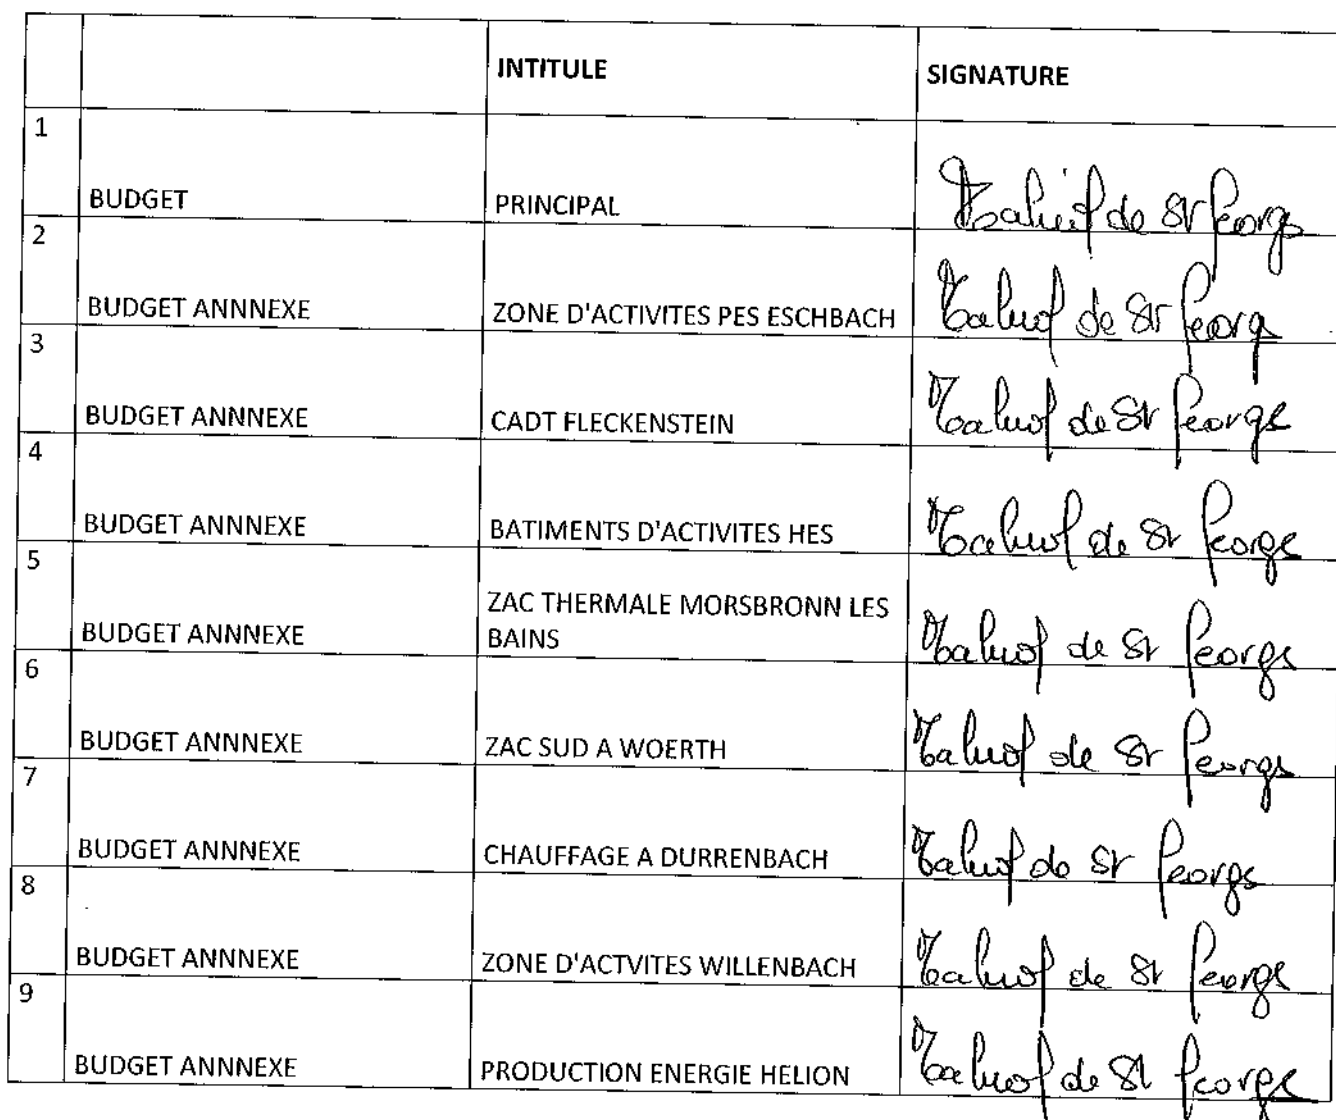 INTITULE SIGNATURE
1
BUDGET PRINCIPAL de St Georgs
2
BUDGET ANNNEXE ZONE D'ACTIVITES PES ESCHBACH de St Georg
3
BUDGET ANNNEXE CADT FLECKENSTEIN de St Georgs
4
BUDGET ANNNEXE BATIMENTS D'ACTIVITES HES de St Georgs
5
ZAC THERMALE MORSBRONN LES
BUDGET ANNNEXE BAINS de St Georgs
6
BUDGET ANNNEXE ZAC SUD A WOERTH de St Georgs
7
BUDGET ANNNEXE CHAUFFAGE A DURRENBACH de St Georgs
8
BUDGET ANNNEXE ZONE D'ACTVITES WILLENBACH de St Georgs
9
BUDGET ANNNEXE PRODUCTION ENERGIE HELION de St Georgs